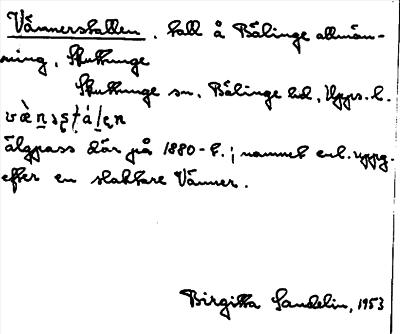 Vännerstallen. tall å Bälinge allmän-
ning, Skuttunge
Skuttunge sn. Bälinge hd, Upps. l.
älgpass där på 1880-t.; namnet enl. uppg.
efter en slaktare Vänner.
Birgitta Sandelin, 1953